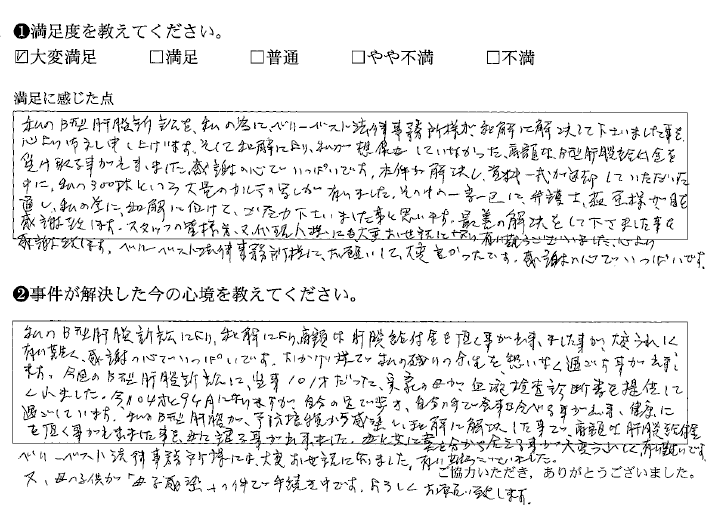 ❶満足度を教えてください。
☑大変満足 □満足 □普通 □やや不満 □不満
満足に感じた点
私のB型肝股訴訟を、私の為に、ベリーベスト法律事務所様が、和解に解決して下さいました事を、
心より御礼申し上げます。そして和解により、私が想像していなかった、高額なB型肝股給付金を
受け取る事が出来ました。感謝の心でいっぱいです。本件が解決し、資料一式が返却していただいた
中に、私の300枚という大量のカルテの写しが有りました。その中の一客一已に、弁護士、様が目を
通し、私の為に、和解に向けて、ご尽力下さいました事と思います。最善の解決をして下さました事を
感謝致します。スタッフの皆様方、又、代理人様にも大変お世話になり有難うございました。心より
感謝致します。ベリーベスト法律事務所様に、お願いして、大変よかったです。感謝の心でいっぱいです。
❷事件が解決した今の心境を教えてください。
私のB型肝股訴訟により、和解により、高額な肝股給付金を頂く事が出来ました事が大変うれしく
有難く、感謝の心でいっぱいです。おかげ様で私の残りの余生を悠いなく過ごす事が出来
ます。今回のB型肝股訴訟に、当時101才だった、実家の母が血液検査診断書を提供して
くれました。今104才と9ヶ月になりますが、自分の足で歩き、自分の手で食事を食べる事が出来、健康に
過ごしています。私のB型肝股が、予防接種から感染し、和解に解決した事で、高額な肝股給付金
を頂く事が出来ました事を母に譲る事が出来ました。
ベリーベスト法律事務所様には、大変お世話になりました。有難うございました。
ご協力いただき、ありがとうございました。
又、母の子供が「母子感染」の件で手続き中です。よろしくお願い致します。